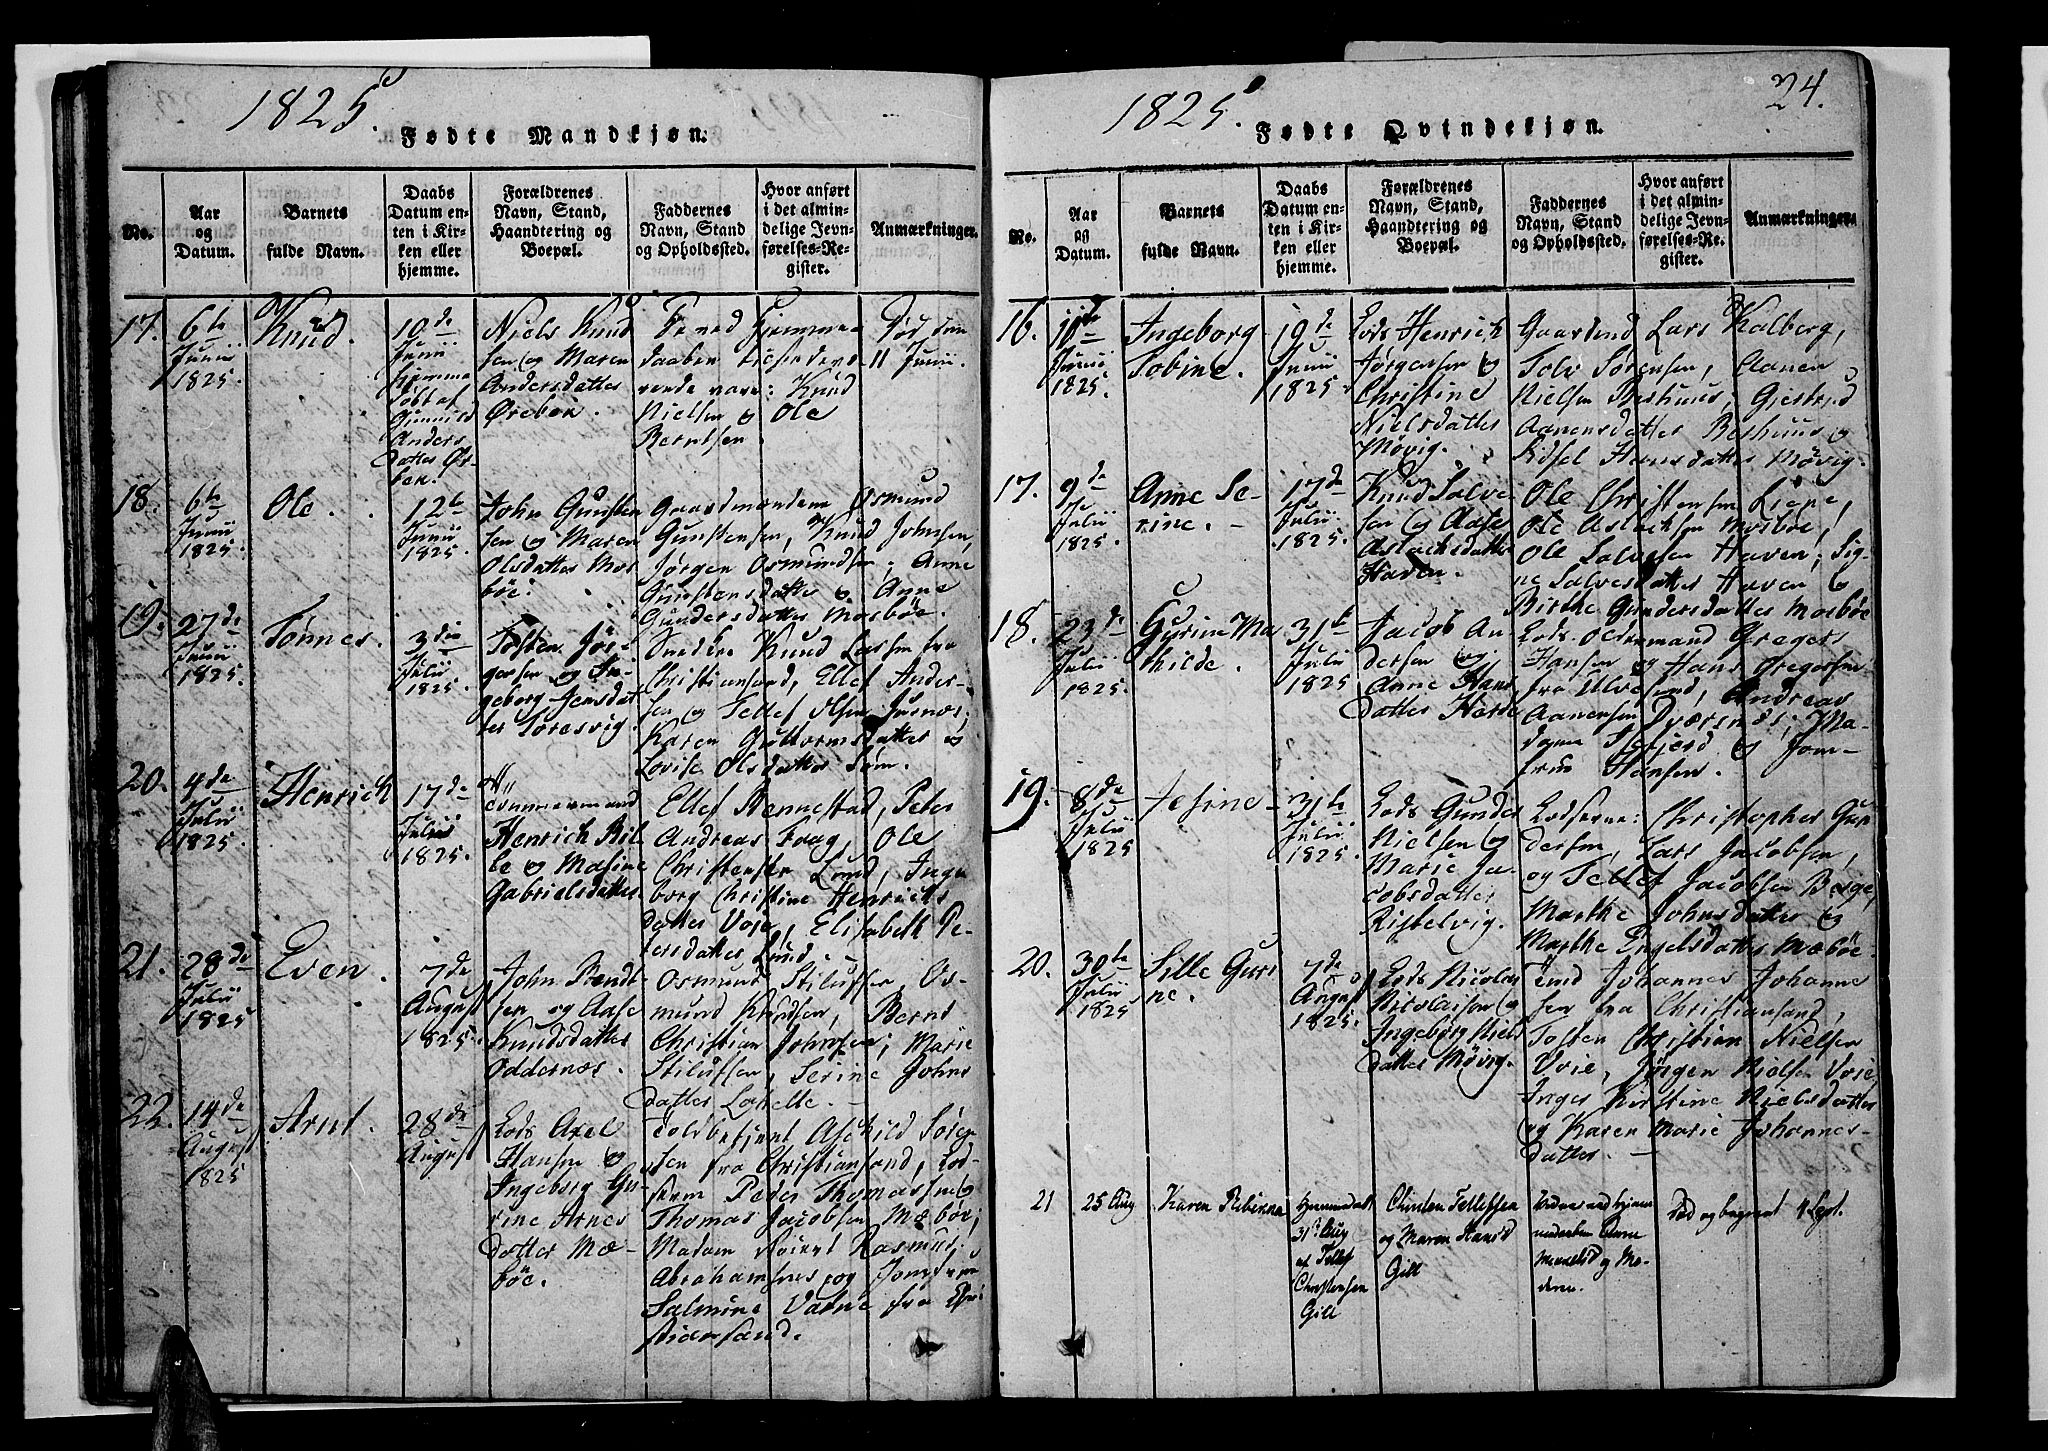 1825.
Fødte Mandkjøn.
No.
Aar
og
Datum.
Barnets
fulde Navn.
Daabs
Datum en-
ten i Kir-
ken eller
hjemme.
Forældrenes
Navn, Stand,
Haandtering og
Boepæl.
Faddernes
Navn, Stand
og Opholdssted.
Hvor anført
i det almin-
delige Jevn-
førelses-Re-
gister.
Anmærkninger.
17.
6te
Junii
1825.
Knud.
10de
Junii
hjemme
døbt af
Gunnild
Anders
datter Ør-
ben.
Niels Knud
sen og Maren
Andersdatter
Øreben.
Ve ned Hjemme
daaben tilstedevæ-
rende vare: Knud
Nielsen og Ole
Berntsen.
Død den
11 Junii.
18.
6te
Junii
1825.
Ole.
12te
Junii
1825.
John Gunsten
sen og Maren
Olsdatter Mos
bøe.
Gaardmændene Osmund
Gunstensen, Knud Johnsen,
Jørgen Osmundsen; Anne
Gunstensdatter og Anne
Gundersdatter Mosbøe.
19.
27de
Junii
1825.
Tønnes.
3die
Julii
1825.
Tosten Jør-
gensen og In-
geborg Jensdat
ter Toresvig.
Snedker Knud Larsen fra
Christiansand, Ellef Ander-
sen og Tellef Olsen Jusnæs;
Karen Guttormsdatter og
Lovise Olsdatter Søm.
20.
4de
Julii
1825.
Henrich
17de
Julii
1825.
Tømmermand
Henrich Bil
le og Masine
Gabrielsdatter
Ellef Rennestad, Peter
Andreas Faag, Ole
Christensen Lund, Inge
borg Christine Henrichs
datter Voie, Elisabeth Pe-
tersdatter Lund.
21.
28de
Julii
1825
Even.
7de
August
1825.
John Bendt
sen og Aase
Knudsdatter
Oddernæs.
Osmund Stiulfsen, Os-
mund Knudsen, Bernt
Christian Johnsen; Marie
Stiulfsen, Serine Johns
datter Lovette.
22.
14de
August
1825
Arnt.
28de
August
Lods Axel
Hansen og
Ingeborg Gu-
rine Arnes
datter Mæ-
bøe.
Toldbetjent Aschild Søren
sen fra Christiansand, Lod-
serne Peder Thomassen og
Thomas Jacobsen Mæbøe;
Madam Rasmus
Abrahamsnes og Jomfrue
Salmine Vatne fra Chri
stiansand.
1825.
24.
Fødte Qvindekjøn.
No.
Aar
og
Datum.
Barnets
fulde Navn.
Daabs
Datum en-
ten i Kir-
ken eller
hjemme.
Forældrenes
Navn, Stand,
Haandtering og
Boepæl.
Faddernes
Navn, Stand
og Opholdssted.
Hvor anført
i det almin-
delige Jevn-
førelses-Re-
gister.
Anmærkninger.
16.
10de
Junii
1825.
Ingeborg
Tobine.
19de
Junii
1825.
Lods Henrich
Jørgensen og
Christine
Nielsdatter
Møvig.
Gaardmd Lars Kalberg,
Tolv Sørensen, Aanen
Nielsen Røshuus, Gjestrud
Aanensdatter Røshuus og
Edsel Hansdatter Møvig.
17.
9de
Julii
1825.
Anne Se-
rine.
17de
Julii
1825.
Knud Salve
sen og Aase
Aslachsdatter
Haven.
Ole Christensen Liene,
Ole Aslachsen Mosbøe,
Ole Salvesen Haven; Sig-
ne Salvesdatter Haven og
Birthe Gundersdatter Mosbøe
18.
23de
Julii
1825.
Gurine Ma
thilde.
31te
Julii
1825
Jacob An
dersen og
Anne Hans
datter Herøe
Lods-Oldermand Gregers
Hansen og Hans Gregersen
fra Ulvøesund, Andreas
Aanensen Dværsnæs; Ma-
dame og Jom-
frue Hansen.
19.
8de
Julii
1825
Jesine
31te
Julii
1825.
Lods Gunder
Nielsen og
Marie Ja-
cobsdatter
Ristelvig.
Lodserne: Christopher Gun
dersen, Lars Jacobsen,
og Tellef Jacobsen Berge,
Marthe Johnsdatter og
Marthe Engelsdatter Mæbøe
20.
30te
Julii
1825
Sille Guri
ne.
7de
August
1825.
Lods Nicolai
Nicolaisen og
Ingeborg Niels
datter Møvig.
Smd Johannes Johanne
sen fra Christiansand,
Tosten Christian Nielsen
Voie, Jørgen Nielsen Voie,
Inger Kirstine Nielsdatter
og Karen Marie Johannes-
datter.
21
25 Aug
Karen Rebinna
Hjemmedøbt
31te Aug
af Tellef
Christensen
Gill
Christen Tellefsen
og Maren Hansd
Gill
Vidner ved hjem
medaaben Anne
Mikkelsd og Mo-
deren.
Død og begravet 4 Sept.